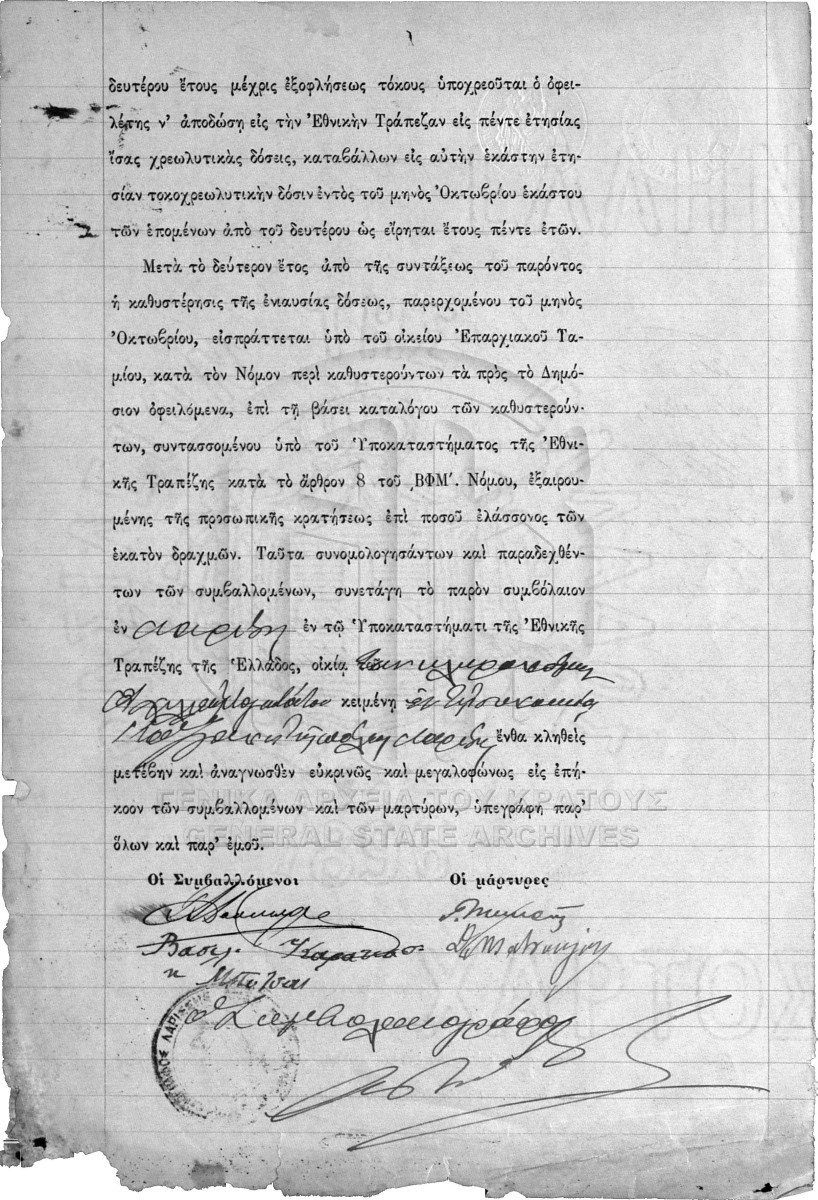 δευτέρου ἔτους μέχρις ἐξοφλήσεως τόκους ὑποχρεοῦται ὁ ὀφει-
λέτης ν' ἀποδώσῃ εἰς τὴν Ἐθνικὴν Τράπεζαν εἰς πέντε ἐτησίας
ἴσας χρεωλυτικὰς δόσεις, καταβάλλων εἰς αὐτὴν ἑκάστην ἐτη-
σίαν τοκοχρεωλυτικὴν δόσιν ἐντὸς τοῦ μηνὸς Ὀκτωβρίου ἑκάστου
τῶν ἑπομένων ἀπὸ τοῦ δευτέρου ὡς εἴρηται ἔτους πέντε ἐτῶν.
Μετὰ τὸ δεύτερον ἔτος ἀπὸ τῆς συντάξεως τοῦ παρόντος
ἡ καθυστέρησις τῆς ἐνιαυσίας δόσεως, παρερχομένου τοῦ μηνὸς
Ὀκτωβρίου, εἰσπράττεται ὑπὸ τοῦ οἰκείου Ἐπαρχιακοῦ Τα-
μίου, κατὰ τὸν Νόμον περὶ καθυστερούντων τὰ πρὸς τὸ Δημό-
σιον ὀφειλόμενα, ἐπὶ τῇ βάσει καταλόγου τῶν καθυστερούν-
των, συντασσομένου ὑπὸ τοῦ Ὑποκαταστήματος τῆς Ἐθνι-
κῆς Τραπέζης κατὰ τὸ ἄρθρον 8 τοῦ ͵ΒΦΜ′. Νόμου, ἐξαιρου-
μένης τῆς προσωπικῆς κρατήσεως ἐπὶ ποσοῦ ἐλάσσονος τῶν
ἑκατὸν δραχμῶν. Ταῦτα συνομολογησάντων καὶ παραδεχθέν-
των τῶν συμβαλλομένων, συνετάγη τὸ παρὸν συμβόλαιον
ἐν Λαρίσῃ ἐν τῷ Ὑποκαταστήματι τῆς Ἐθνικῆς
Τραπέζης τῆς Ἑλλάδος, οἰκίᾳ τῶν κληρονόμων
κειμένῃ
Λαρίσῃ ἔνθα κληθεὶς
μετέβην καὶ ἀναγνωσθὲν εὐκρινῶς καὶ μεγαλοφώνως εἰς ἐπή-
κοον τῶν συμβαλλομένων καὶ τῶν μαρτύρων, ὑπεγράφη παρ'
ὅλων καὶ παρ' ἐμοῦ.
ΓΕΝΙΚΑ ΑΡΧΕΙΑ ΤΟΥ ΚΡΑΤΟΥΣ
GENERAL STATE ARCHIVES
Οἱ Συμβαλλόμενοι Οἱ μάρτυρες
Βασιλ.
ὁ Συμβολαιογράφος
ΛΑΡΙΣΣΗΣ